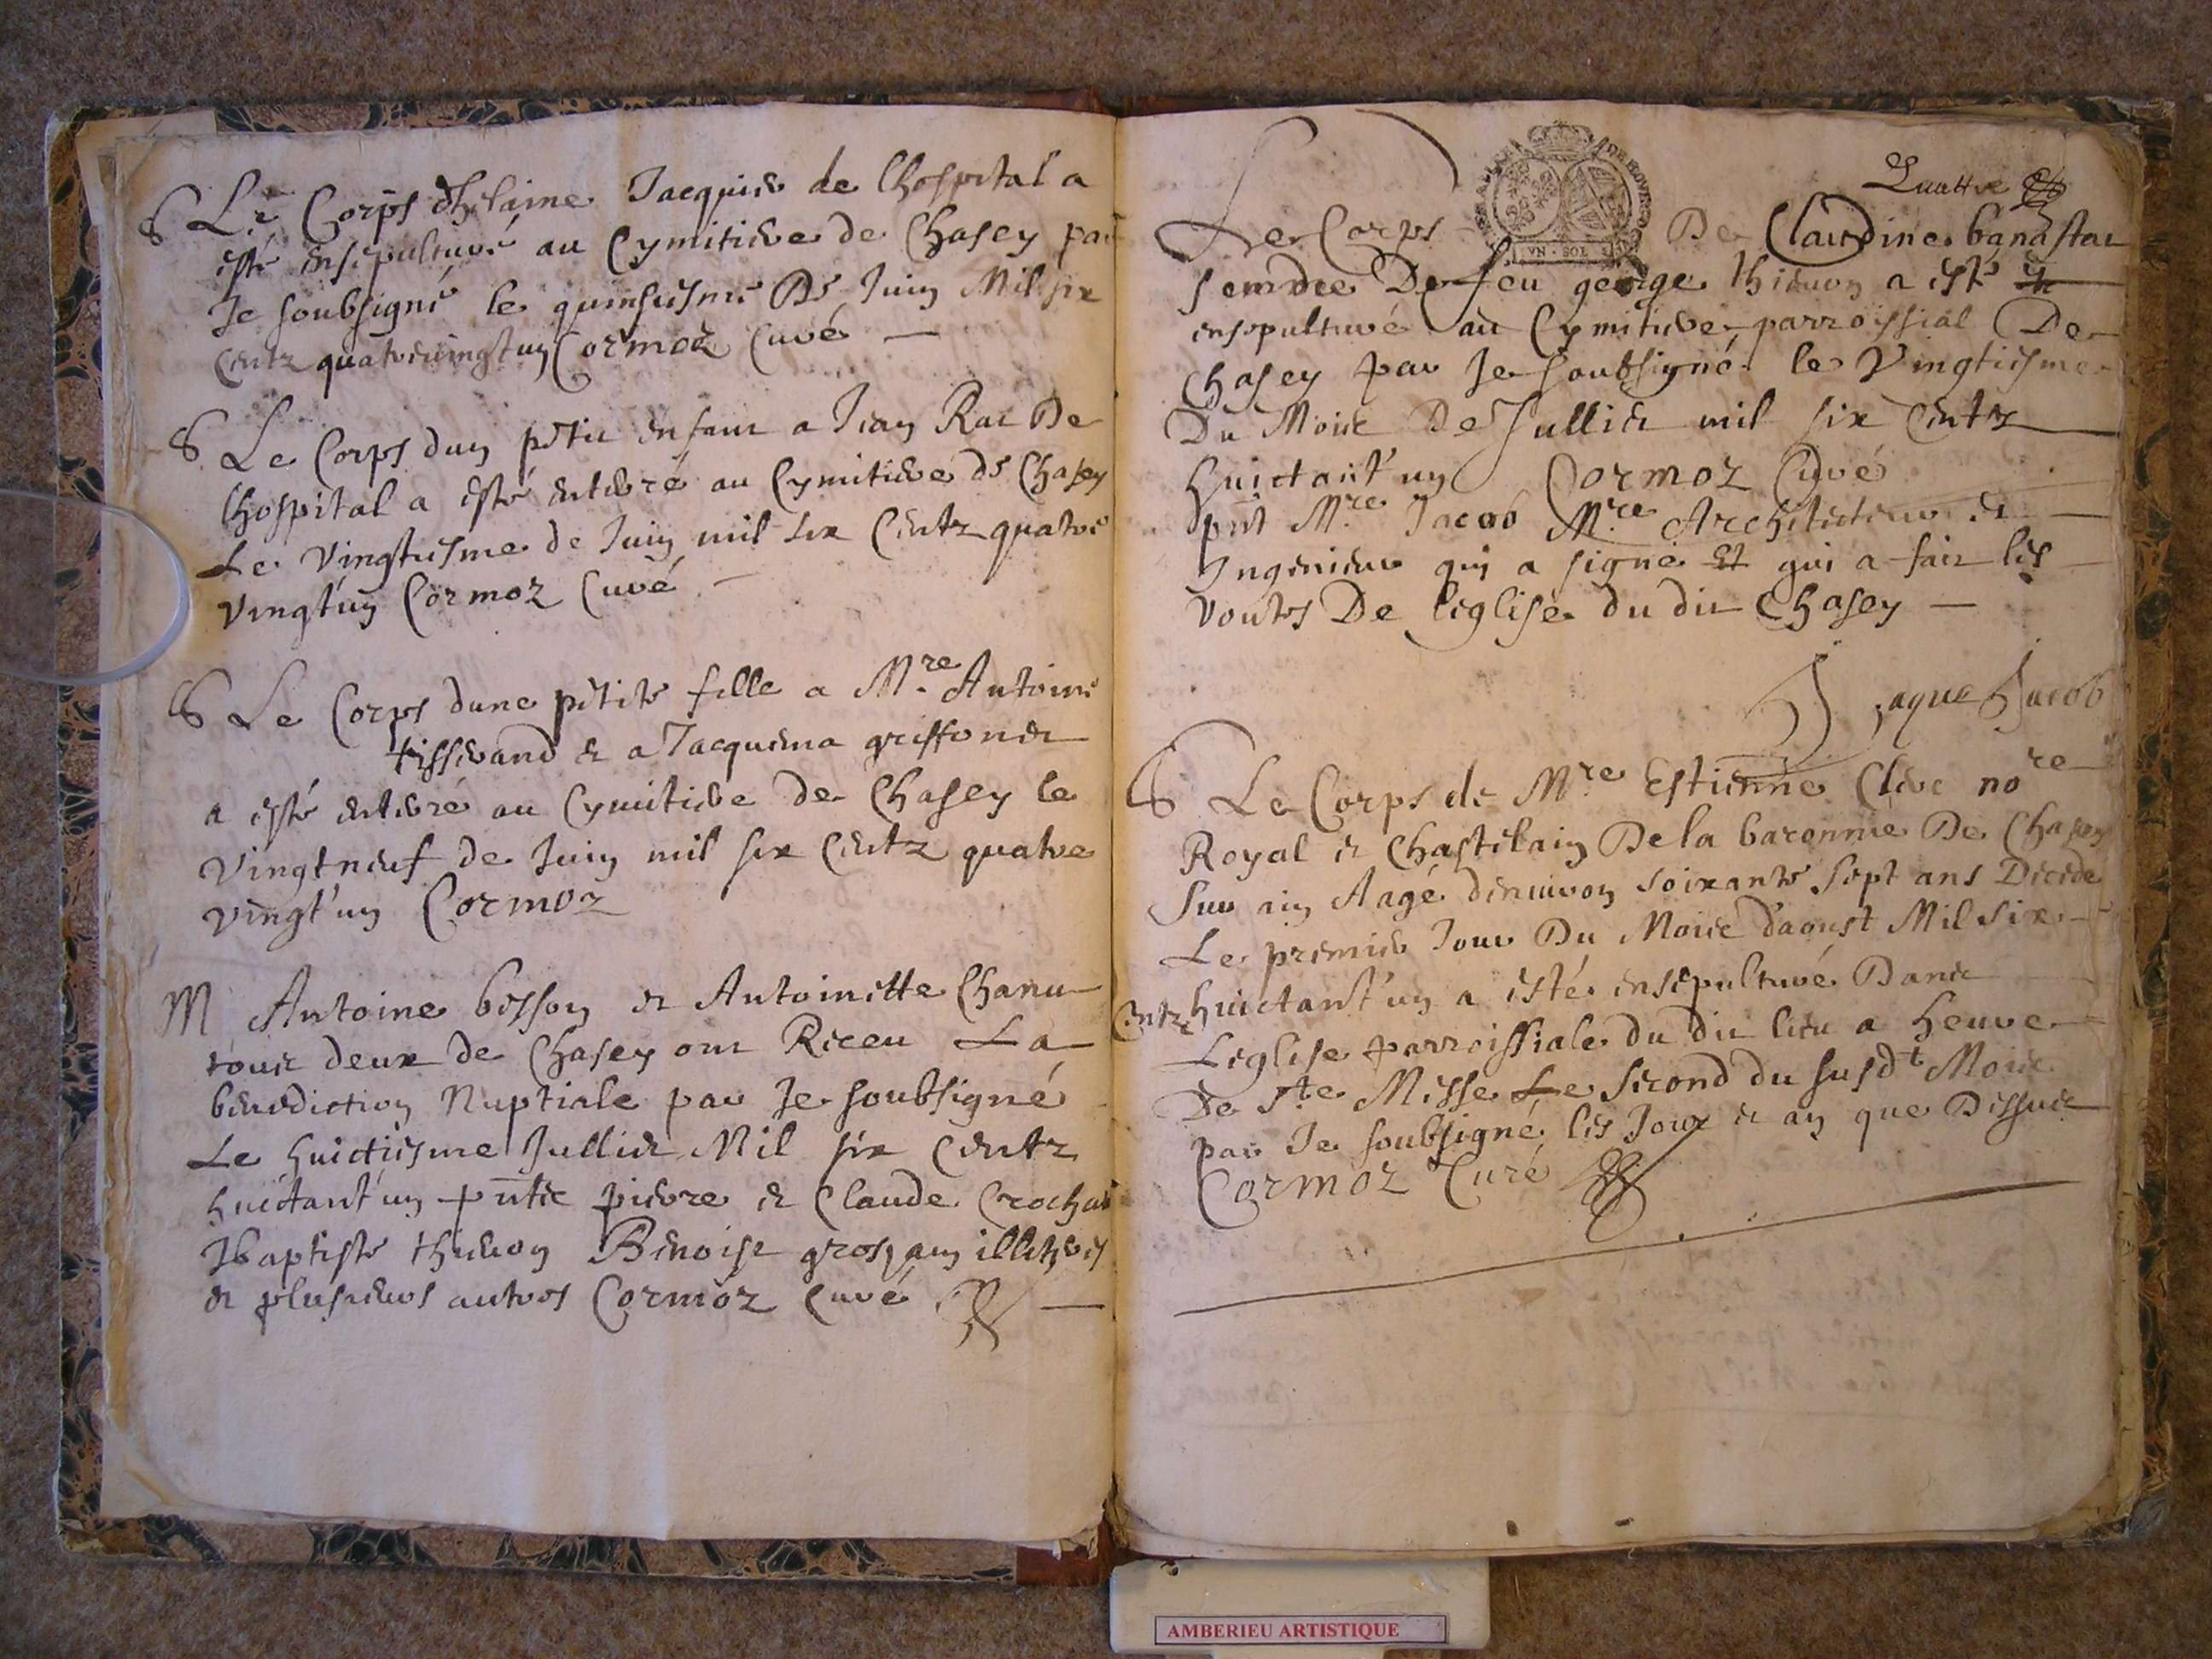 S Le Corps dhelaine Jacquier de lhospital a
esté ensepulturé au Cymitiere de Chasey par
Je soubsigné le quinsiesme De Juin Mil six
Centz quatrevingt un Cormoz Curé
S Le Corps dun petit enfant a Jean Rat De
lhospital a esté enterré au Cymitiere de Chasey
Le Vingtiesme de Juin mil six Centz quatre
Vingt'un Cormoz Curé
S Le Corps dune petite fille a Mre Antoine
tisserand et a Jacquema griffonet
a esté enterré au Cymitiere de Chasey le
Vingtneuf de Juin mil six Centz quatre
vingt'un Cormoz
M Antoine besson et Antoinette Chanu
tous deux de Chasey ont Receu La
benediction Nuptiale par Je soubsigné
Le huictiesme Jullier Mil six Centz
huictant'un pntz pierre et Claude Crochat
Jbaptiste thienon Benoist grosjam illetrés
et plusieurs autres Cormoz Curé
Quattre
Le Corps De Claudine banastar
VN SOL
femme De feu george thienon a esté
ensepulturé au Cymitiere parroissial De
Chasey par Je soubsigné le Vingtiesme
Du Mois De Jullier mil six Centz
huictant'un Cormoz Curé
pnt Mre Jacob Mre Architecteur et
Ingenieur qui a signé Et qui a fait les
voutes De leglise du dit Chasey
Jaque Jacob
S Le Corps de Mre Estienne Clerc nore
Royal et Chastelain De la baronnie De Chasey
Sur ain Aagé denuiron soixante sept ans Decede
Le premier Jour Du Mois d'aoust Mil six
Centz huictant'un a esté ensepulturé Dans
Leglise parroissiale du dit lieu a heure
De Ste Messe Le second du susdt Mois
par Je soubsigné les Jour et an que Dessus
Cormoz Curé
AMBERIEU ARTISTIQUE